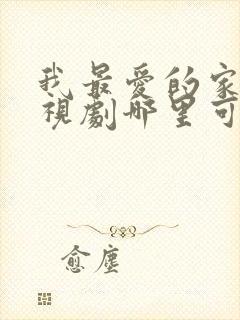 我最愛的家
視劇哪里可
愈塵